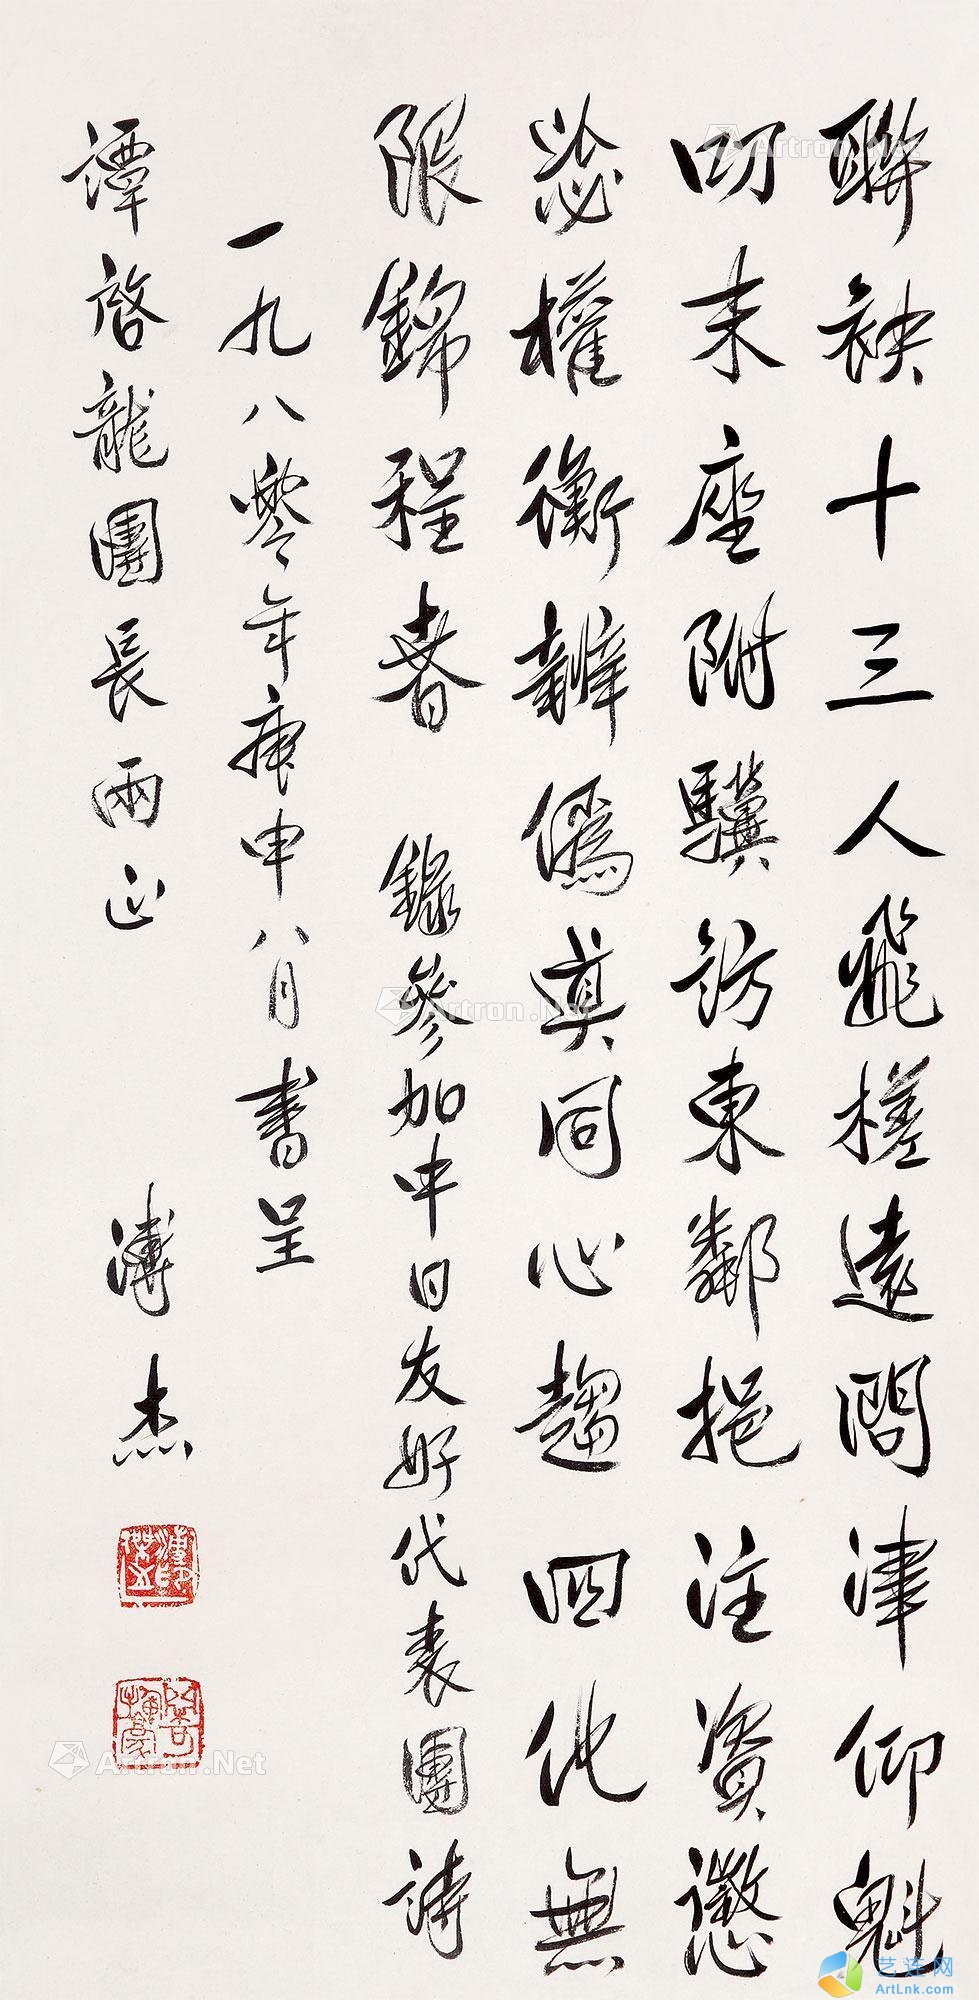 聯袂十三人飛槎遠問津仰魁
叨末座附驥訪東鄰挹注資懲
毖權衡辨僞真同心趨四化無
限錦程春 錄參加中日友好代表團詩
一九八零年庚申八月書呈
譚啓龍團長兩正
溥杰
Artron.Net
Artron.Net
Artron.Net
艺连网
ArtLnk.com